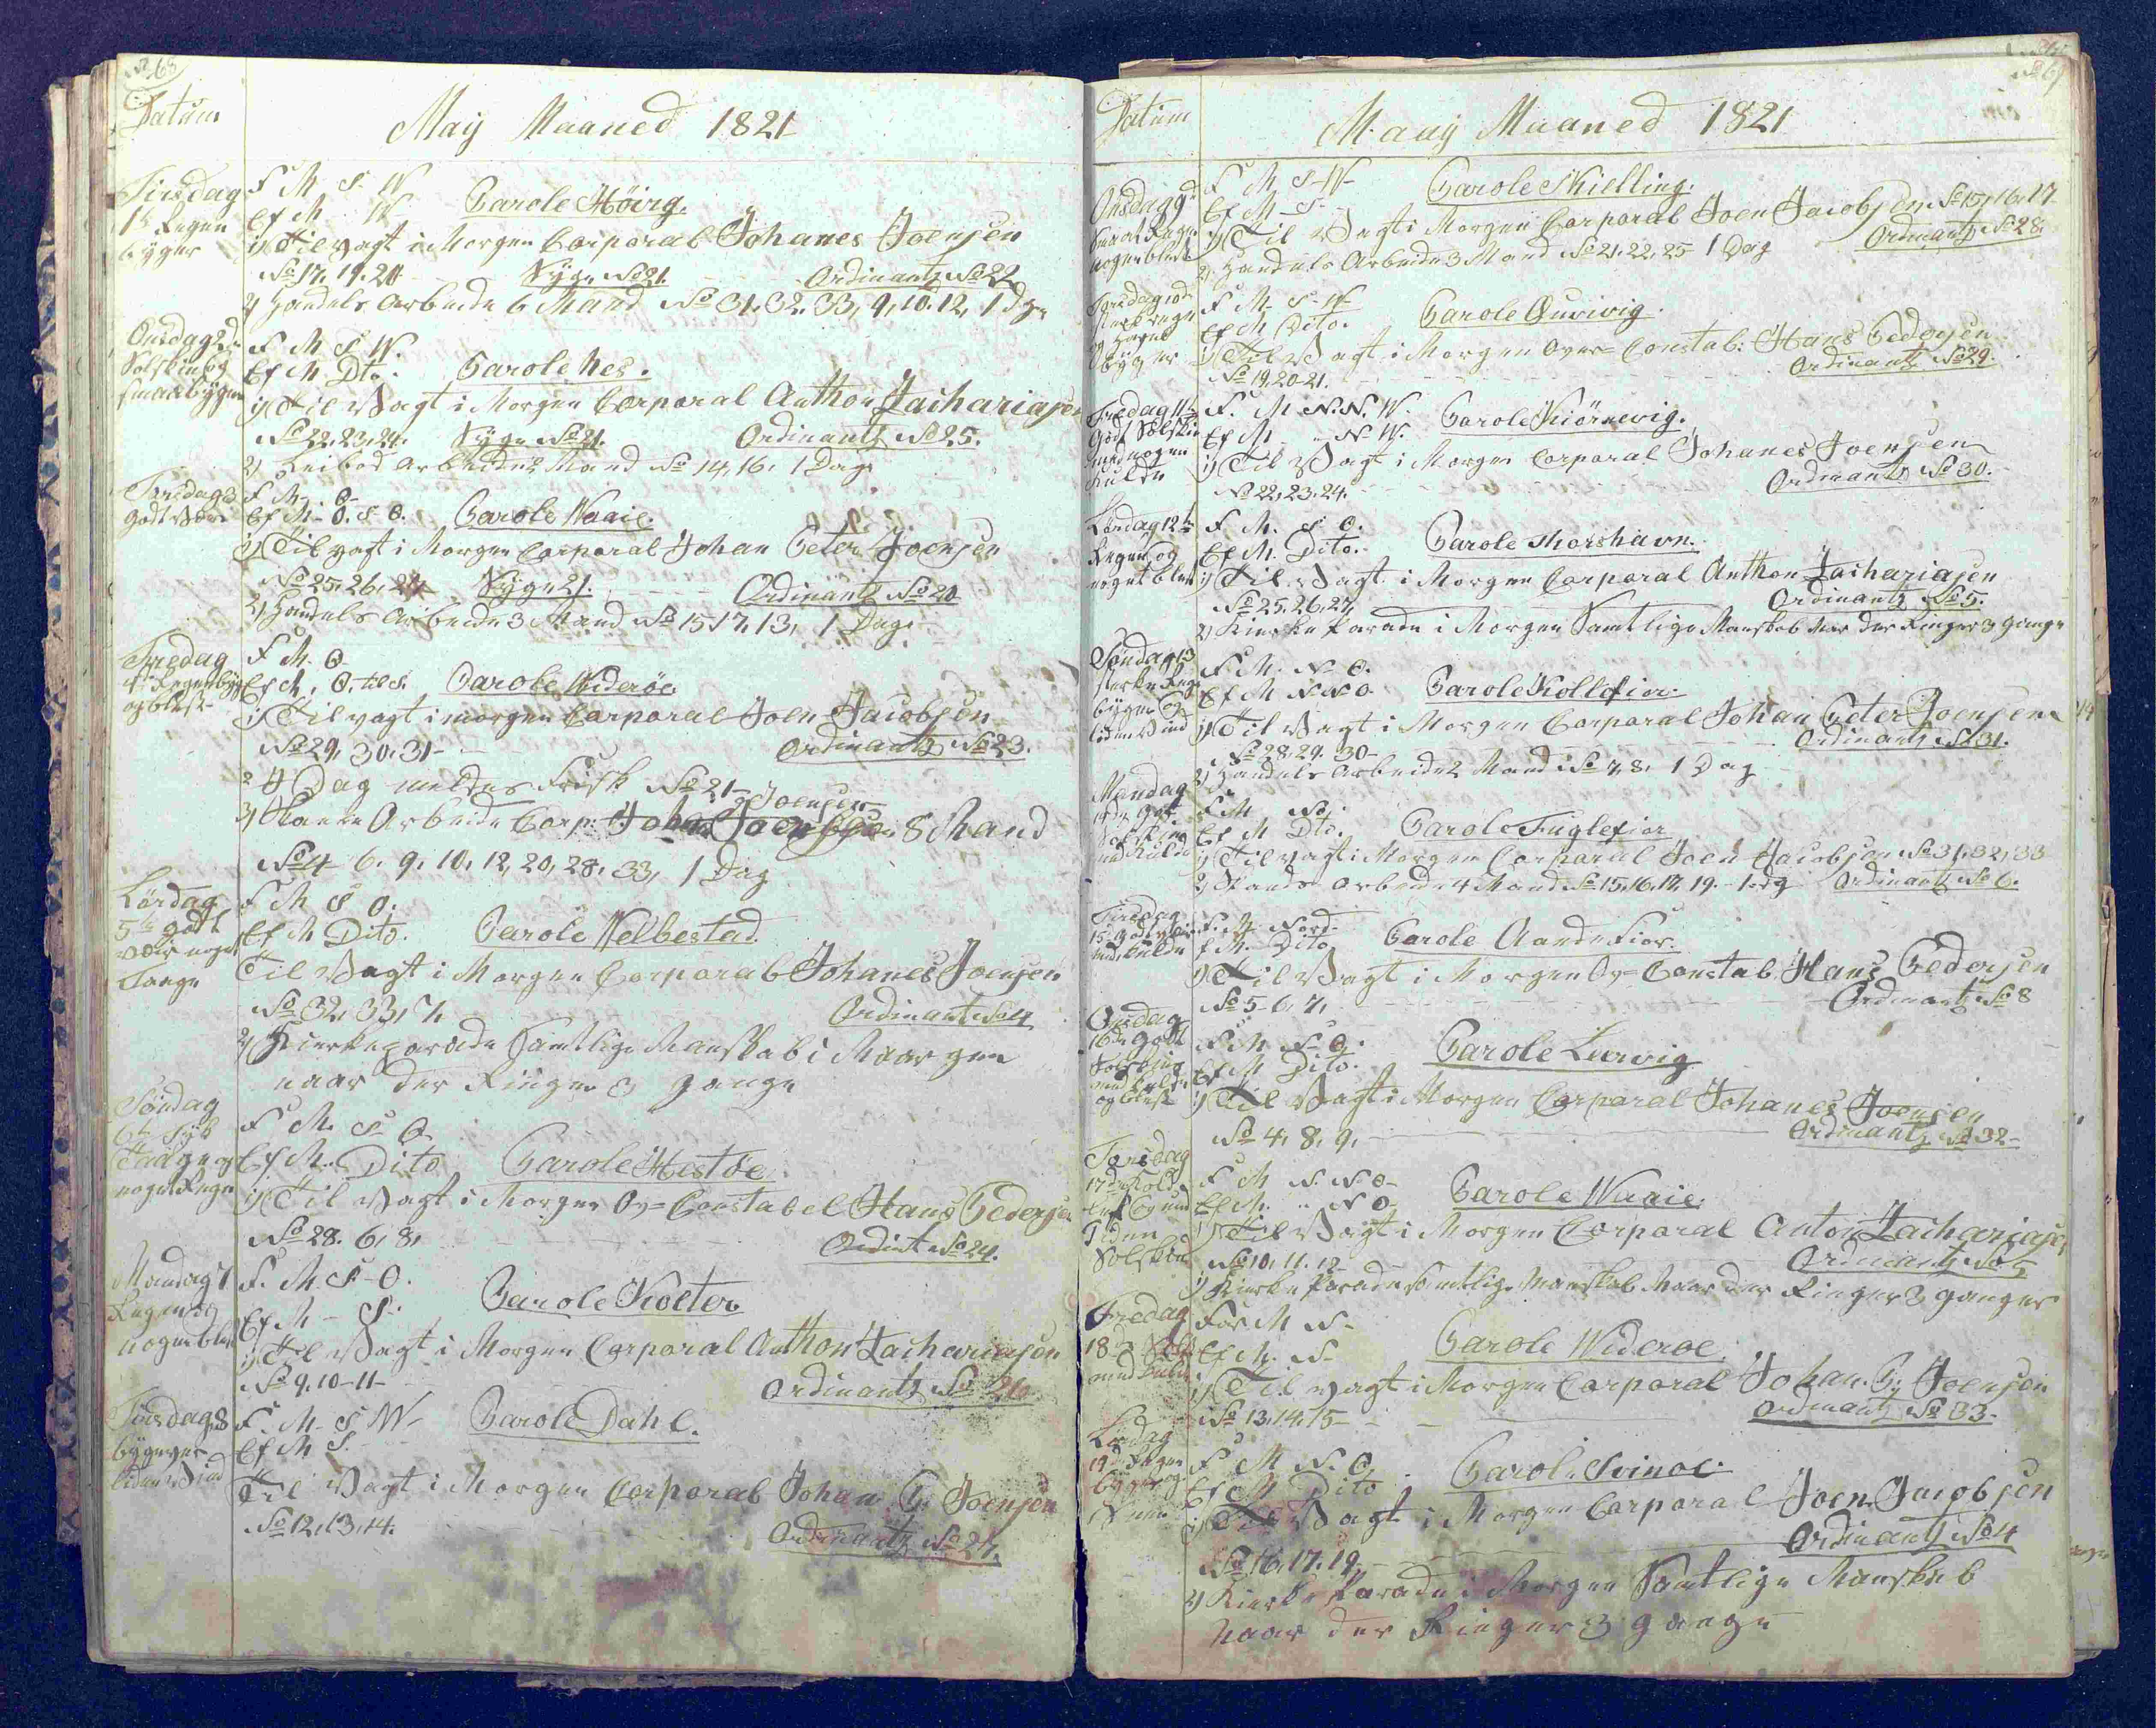 No 68
Datum
May Maaned 1821
Tirsdag
1te Regen
byger
F M S. W
Ef M W Parole Høivig.
1) Til Vagt i Morgen Corporal Johanes Joensen
No 17, 19. 20 Syge No 21. Ordinantz No 22
2) Handels Arbeide 6 Mand No 31. 32. 33, 9, 10. 12, 1 Dag
Onsdag 2d
Solskin og
smaa byger
F M S W.
Ef M Dto. Parole Nes.
1) Til Vagt i Morgen Corporal Anthon Zachariasen
No 22, 23, 24. Syge No 21. Ordinantz No 25.
2) Leibod arbeide 2 Mand No 14, 16, 1 Dag
Torsdag 3
Godt Veir
F M. O
Ef M. O. S O. Parole Waaie.
1) Til Vagt i Morgen Corporal Johan Peter Joensen
No 25, 26, 27 Syge 21. Ordinantz No 20
2) Handels Arbeide 3 Mand No 15 17, 13, 1 Dag
Fredag
4de Regenbyger
og blæst
F M. O
Ef M. O. til S. Parole Widerøe
1) Til vagt i morgen Corporal Joen Jacobsen
No 29, 30, 31 Ordinantz No 23.
2 I Dag meldes Frisk No 21
Joensen
3) Skantze Arbeide Corp: Johan Joensen 8 Mand
No 4 6. 9, 10, 12, 20, 28, 33, 1 Dag
Lørdag
5te godt
veir noget
Taage
F M S O.
Ef M Dito. Parole Welbestad
Til Vagt i Morgen Corporal Johanes Joensen
No 32, 33, 7. Ordinantz No 4
2) Kierkeparade Samtlige Manskab i Morgen
naar der Ringer 3 gange
Søndag
6te Tyk
Taage og
noget Regn
F M. S O
Ef M. Dito Parole Hestøe
1) Til Vagt i Morgen Ov= Constabel Hans Pedersen
No 28. 6, 8, Ordint No 24.
Mandag 7
Regen og
nogen blæst
F. M S-O.
Ef M - S. Parole Kolter
1) Til Vagt i Morgen Corporal Anthon Zachariasen
No 9. 10-11- Ordinantz No 26
Tirsdag 8
bygeveir
liden Vind
F. M. S W- Parole Dahl.
Ef M S.
Til Vagt i Morgen Corporal Johan P. Joensen
No 12, 13, 14. Ordinantz No 27.
No 69
Datum
Maay Maaned 1821
Onsdag 9d
Smaat Regn
nogen blæst
F M S-W- Parole Skielling.
Ef M-S-
1) Til Vagt i Morgen Corporal Joen Jacobsen No 15, 16, 17
Ordinantz No 28
2) Handels Arbeide 3 Mand No 21, 22, 25 1 Dag
Torsdag 10de
Sterk regn
og Hagel
byger
F M- S-W-
Ef M Dito. Parole Quivig
1) Til Vagt i Morgen Over= Constab: Hans Pedersen
No 19, 20-21. Ordinantz No 29.
Fredag 11te
Godt Solskin
med nogen
Kulde
F. M N. N. W.
Ef M - N W. Parole Kiørnevig.
1) Til Vagt i Morgen Corporal Johanes Joensen
No 22, 23. 24. Ordinantz No 30.
Lørdag 12te
Regen og
noget blæst
F M. S O.
Ef M. Dito. Parole Thorshavn.
1) Til Vagt i Morgen Corporal Anthon Zachariasen
No 25, 26, 27, Ordinantz No 5.
2) Kierke Parade i Morgen Samtlige Manskab Naar der Ringer 3 gange
Søndag 13
sterke Regn
byger og
liden Vind
F. M. N O.
Ef M N. N O Parole Kollefior.
1) Til Vagt i Morgen Corporal Johan Peter Joensen
No 28, 29. 30- Ordinantz No 31.
2) Handels Arbeide 2 Mand No 7, 8, 1 Dag
Mandag
14de Godt
Solskin
med Kulde
F M No
Ef M Dto. Parole Fuglefior
1) Til Vagt i Morgen Corporal Joen Jacobsen No 31, 32, 33
2) Skands Arbeide 4 Mand No 15, 16, 17, 19.- 1 dg Ordinantz No 6.
Tirsdag
15 Godt veir
med kulde
F. M Nord.
Ef M. Dito Parole Aandefior.
1) Til Vagt i Morgen Ov= Constab. Hans Pedersen
No 5 6, 7, Ordinantz No 8
Onsdag
16de Godt
Solskin
med kulde
og blæst
F M N O.
Ef M Dito. Parole Leervig
1) Til Vagt i Morgen Corporal Johanes Joensen
No 4, 8, 9, Ordinantz No 32-
Torsdag
17de Kold
Luft og
liden
Solskin
F M N N O-
Ef M. " N O Parole Waaie.
1) Til Vagt i Morgen Corporal Anton Zachariasen
No 10, 11. 12 Ordinantz No 5
1) Kierke Parade Samtlige Manskab Naar der Ringer 3 ganger
Fredag
18de
med Kulde
For M N-
Ef M. N- Parole Wideroe.
1) Til vagt i Morgen Corporal Johan. P. Joensen
No 13, 14, 15- Ordinantz No 33-
Lørdag
19de Regen
byger og
Snee
F M N. O
Ef M Dito Parole Svinoe.
1) Til Vagt i Morgen Corporal Joen Jacobsen
No 16, 17. 19, Ordinantz No 4
2) Kierke Parade i Morgen Samtlige Manskab
Naar der Ringer 3 gange